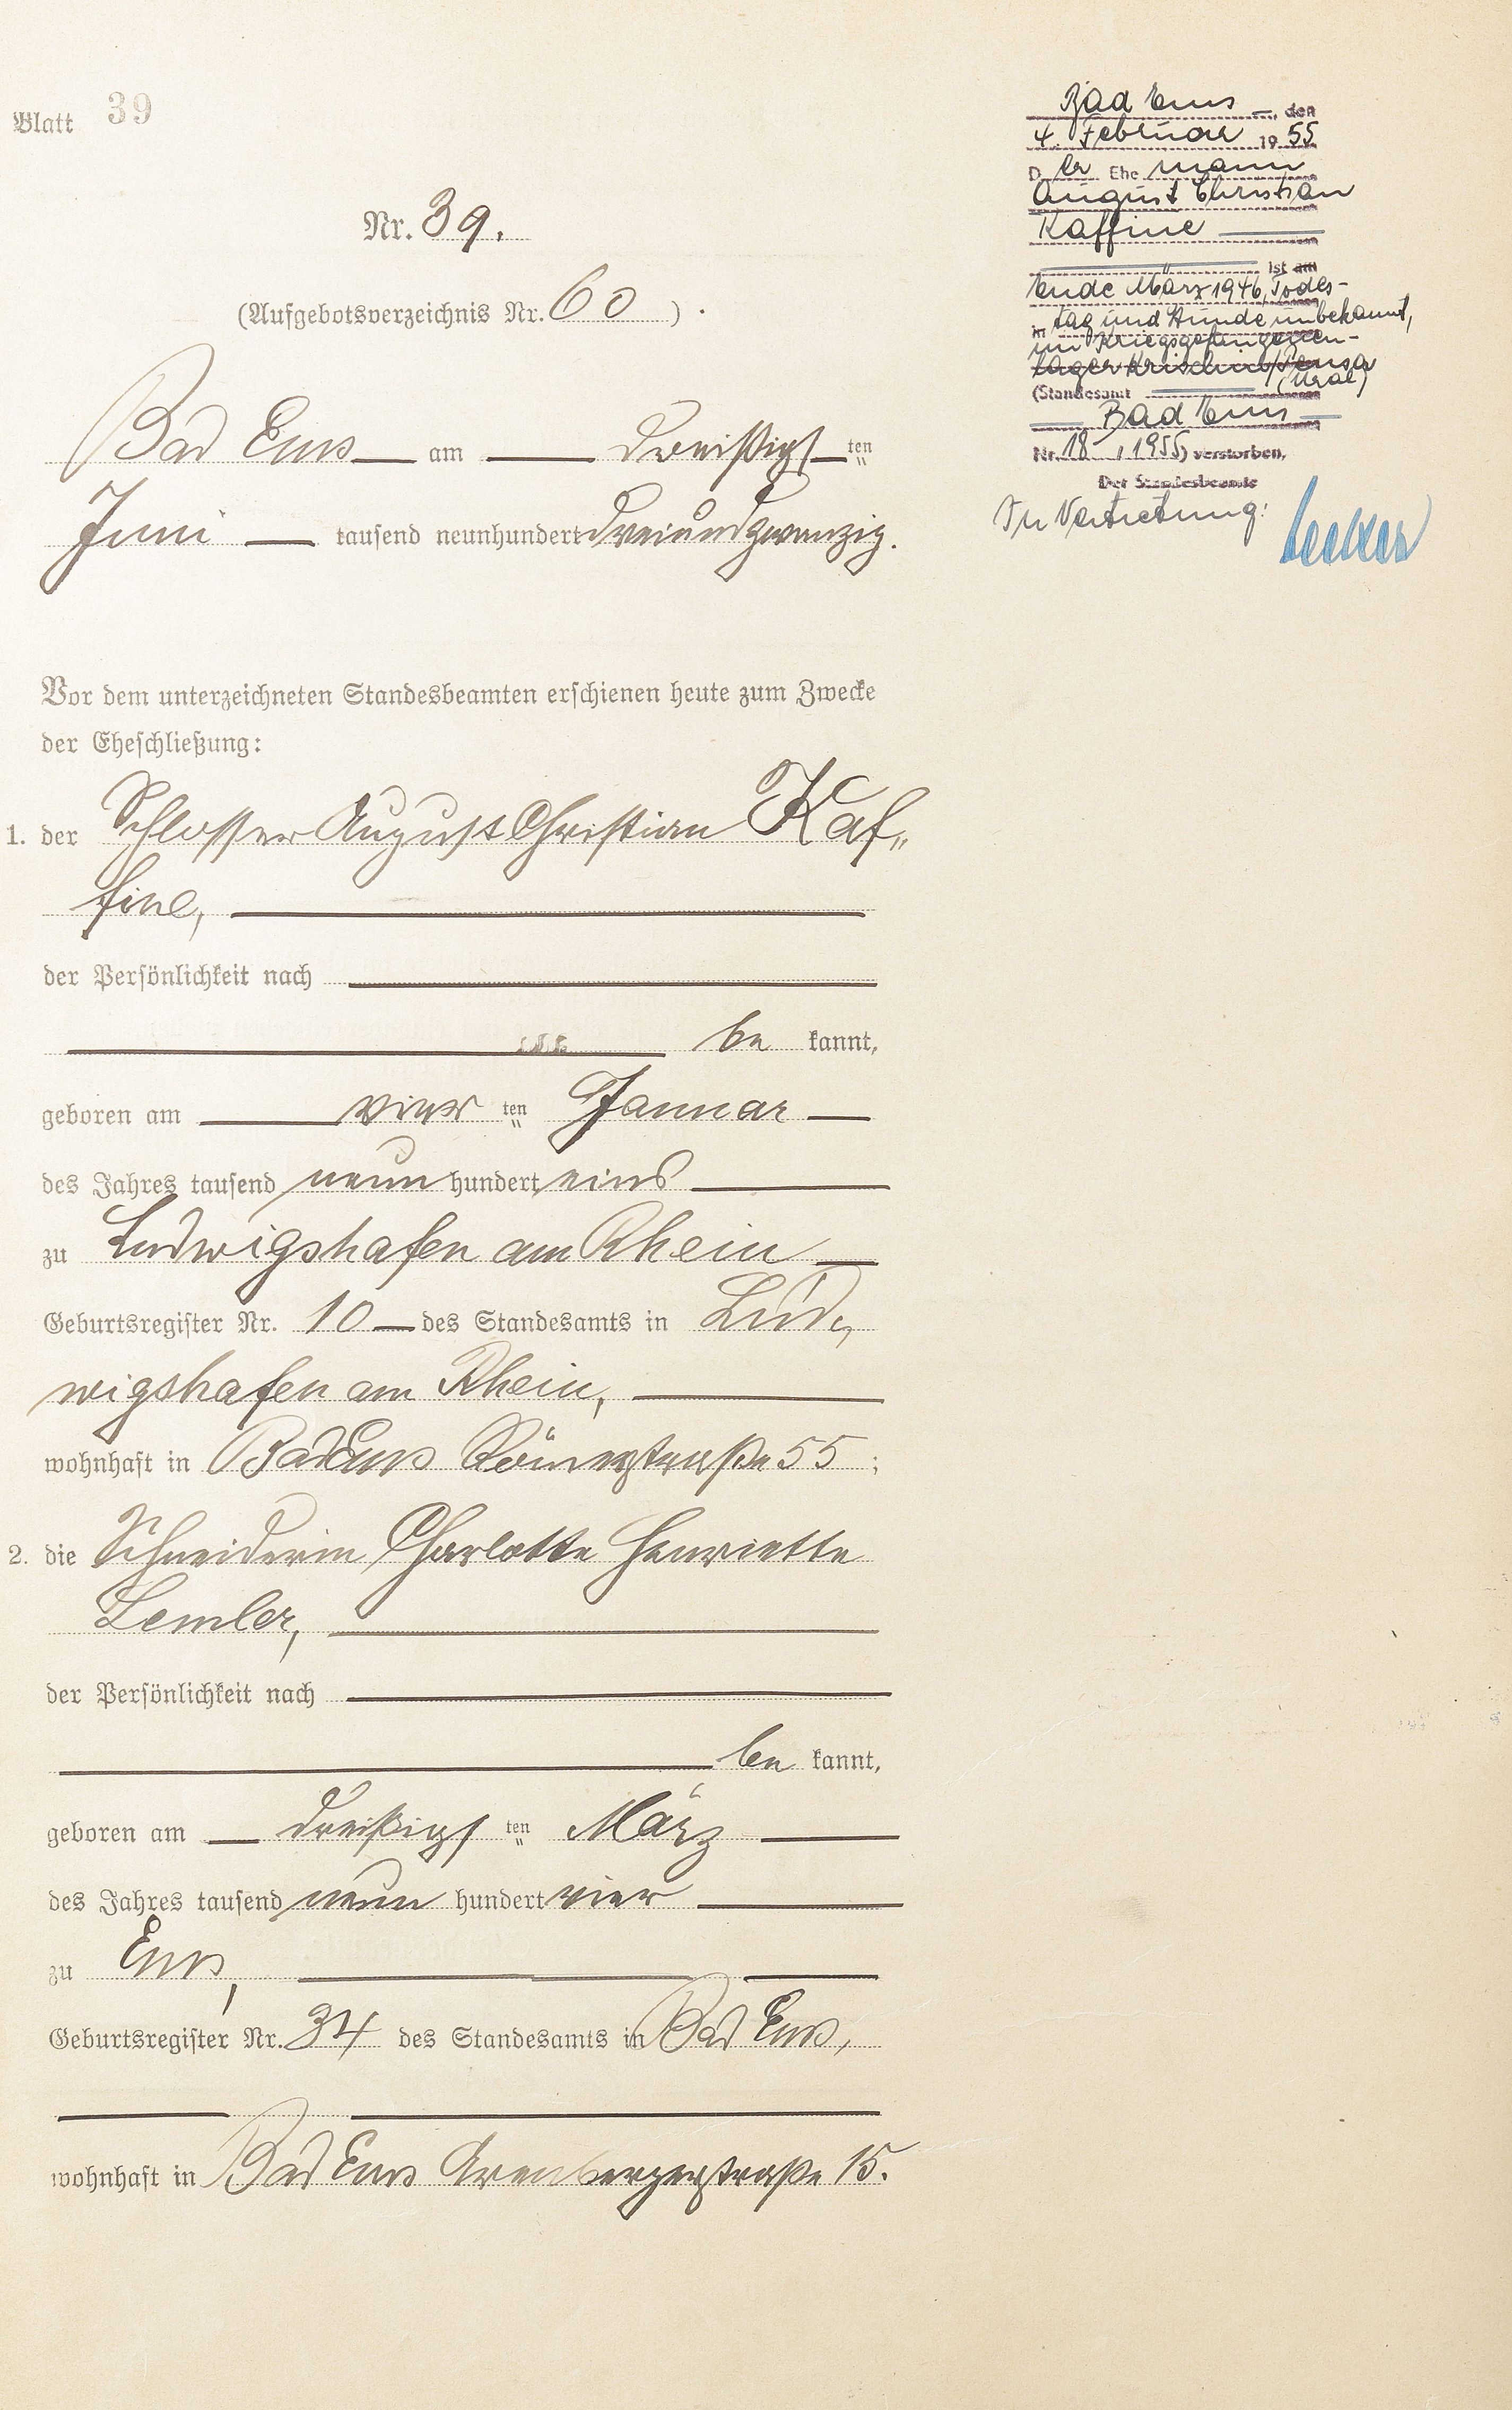 Blatt 39
Nr. 39.
(Aufgebotsverzeichnis Nr. 60).
Bad Ems am dreißigsten
Juni tausend neunhundert dreiundzwanzig.
Vor dem unterzeichneten Standesbeamten erschienen heute zum Zwecke
der Eheschließung:
1. der Schlosser August Christian Kaf„
fine,
der Persönlichkeit nach
be kannt,
geboren am vier ten Januar
des Jahres tausend neun hundert eins
zu Ludwigshafen am Rhein
Geburtsregister Nr. 10 des Standesamts in Lud„
wigshafen am Rhein,
wohnhaft in Bad Ems Römerstraße 55;
2. die Schneiderin Charlotte Henriette
Lemler,
der Persönlichkeit nach
be kannt,
geboren am dreißigs ten März
des Jahres tausend neun hundert vier
zu Ems,
Geburtsregister Nr. 34 des Standesamts in Bad Ems,
wohnhaft in Bad Ems Arenbergerstraße 15.
Bad Ems, den
4. Februar 1955
Der Ehemann
August Christian
Kaffine
ist am
Ende März 1946, Todes-
in tag und Stunde unbekannt,
im Kriegsgefangenen-
lager /Pensa
(Ural)
(Standesamt
Bad Ems
Nr. 18, 1955) verstorben.
Der Standesbeamte
In Vertretung: